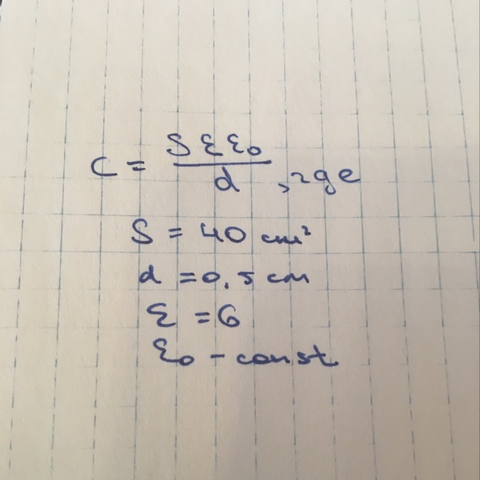 C = SƐƐ₀/d, где
S = 40 cm²
d = 0,5 cm
Ɛ = 6
Ɛ₀ - const